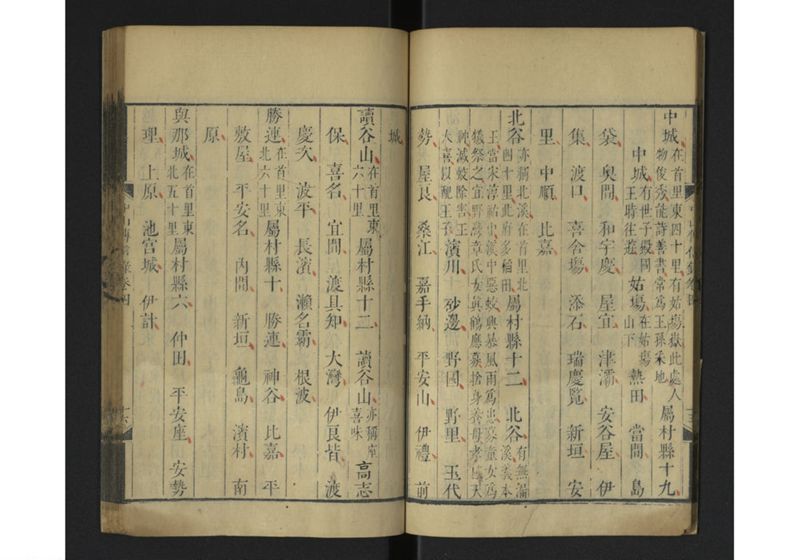 中城在首里東四十里有姑場嶽此處人物俊秀能詩善書常爲王孫采地屬村縣十九
中城有世子殿國王時往遊姑場在姑場山下熱田 當間 島
袋 奥間 和宇慶 屋宜 津灞 安谷屋 伊
集 渡口 喜舍場 添石 瑞慶覽 新垣 安
里 中順 比嘉
北谷亦稱北溪在首里北四十里北府多稻田屬村縣十二 北谷有無漏溪義本
王當宋淳祐中溪中惡蛟興暴風雨爲患募童女爲
犧祭之宜野灣章氏女眞鶴應募捨身養母孝感天
神滅蛟除害王大喜以配王子濱川 砂邊 野國 野里 玉代
勢 屋良 桑江 嘉手納 平安山 伊禮 前
城
讀谷山在首里東六十里屬村縣十二 讀谷山亦稱座喜味高志
保 喜名 宜間 渡具知 大灣 伊良皆 渡
慶次 波平 長濱 瀨名霸 根波
勝連在首里東北六十里屬村縣十 勝連 神谷 比嘉 平
敷屋 平安名 內間 新垣 龜島 濱村 南
原
與那城在首里東北五十里屬村縣六 仲田 平安座 安勢
理 上原 池宮城 伊計
中山傳信錄卷四